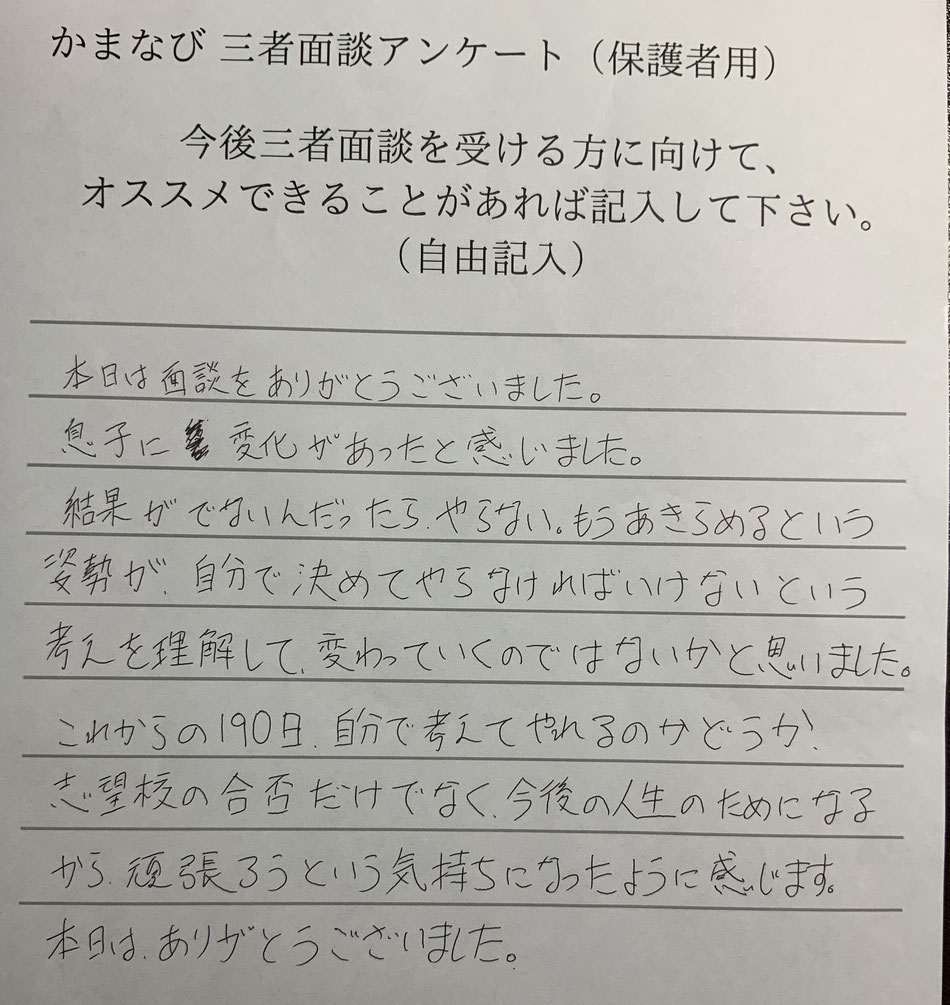 かまなび 三者面談アンケート（保護者用）
今後三者面談を受ける方に向けて、
オススメできることがあれば記入して下さい。
（自由記入）
本日は面談をありがとうございました。
息子に変化があったと感いました。
結果がでないんだったら、やらない。もうあきらめるという
姿勢が、自分で決めてやらなければいけないという
考えを理解して、変わっていくのではないかと思いました。
これからの190日、自分で考えてやれるのかどうか、
志望校の合否だけでなく、今後の人生のためになる
から、頑張ろうという気持ちになったように感じます。
本日は、ありがとうございました。